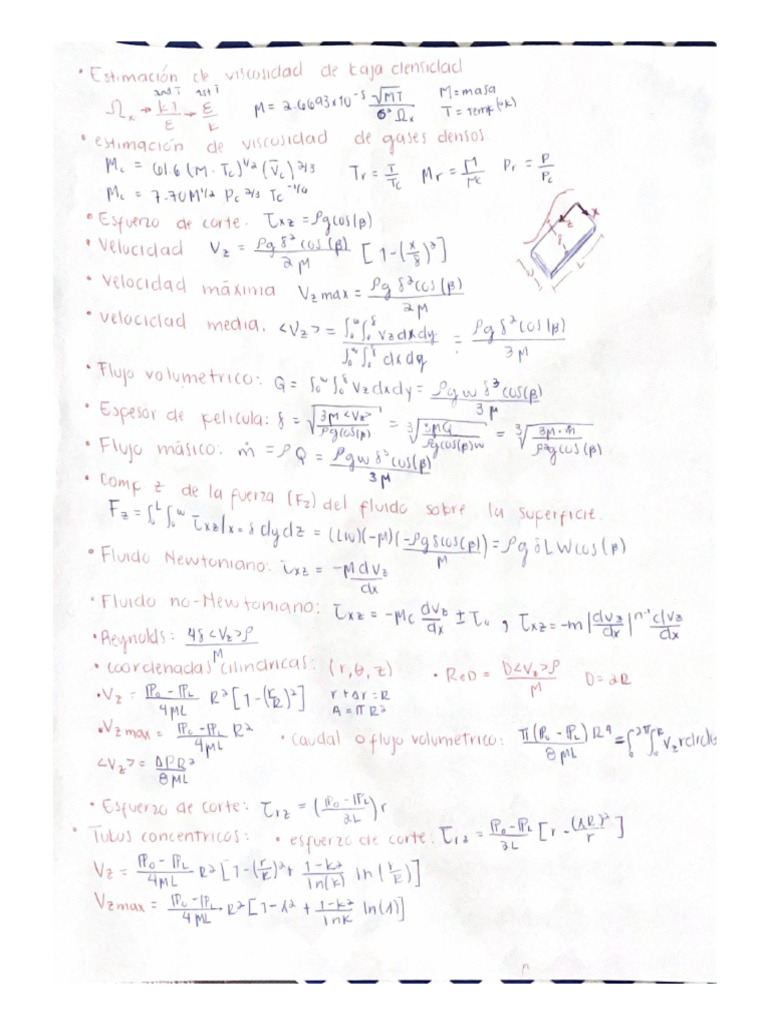 • Estimación de viscosidad de baja densidad
2nd T 1st T
Ωx → kT/ε → ε/k   M = 2.6693x10⁻⁵ √MT / σ² Ωx   M = masa
T = temp (°k)
• estimación de viscosidad de gases densos.
Mc = 61.6 (M · Tc)^1/2 (Ṽc)^2/3   Tr = T/Tc   Mr = M/Mc   Pr = P/Pc
Mc = 7.70 M^1/2 Pc^2/3 Tc^-1/6
• Esfuerzo de corte. τxz = ρg cos(β)
• Velocidad Vz = ρg δ² cos(β) / 2M [1-(x/δ)²]
• velocidad máxima Vz max = ρg δ² cos(β) / 2M
• velocidad media. <Vz> = ∫₀ʷ∫₀^δ Vz dx dy / ∫₀ʷ∫₀^δ dx dy = ρg δ² cos(β) / 3M
• Flujo volumetrico: Q = ∫₀ʷ∫₀^δ Vz dx dy = ρg w δ³ cos(β) / 3M
• Espesor de pelicula: δ = √(3M<Vz> / ρg cos(β)) = ³√(3MQ / ρg cos(β)w) = ³√(3M·ṁ / ρ²g cos(β))
• Flujo másico: ṁ = ρQ = ρg w δ³ cos(β) / 3M
• Comp. z de la fuerza (Fz) del fluido sobre la superficie.
Fz = ∫₀ᴸ∫₀ʷ τxz|x=δ dy dz = (LW)(-M)(-ρg δ cos(β) / M) = ρg δ L W cos(β)
• Fluido Newtoniano: τxz = -M dVz/dx
• Fluido no-Newtoniano: τxz = -Mc dVz/dx ± τ₀ , τxz = -m |dVz/dx|ⁿ⁻¹ dVz/dx
• Reynolds: 4δ<Vz>ρ / M
• coordenadas cilindricas: (r,θ,z)   • ReD = D<Vz>ρ / M   D = 2R
• Vz = ℙ₀-ℙL / 4ML R² [1-(r/R)²]   r+Δr=R
A = πR²
• Vz max = ℙ₀-ℙL / 4ML R²   • caudal o flujo volumetrico: π(ℙ₀-ℙL)R⁴ / 8ML = ∫₀²π∫₀ᴿ Vz r dr dθ
<Vz> = ΔPR² / 8ML
• Esfuerzo de corte: τrz = (ℙ₀-ℙL / 2L) r
• Tubos concentricos: • esfuerzo de corte: τrz = ℙ₀-ℙL / 2L [r - (λR)²/r]
Vz = ℙ₀-ℙL / 4ML R² [1-(r/R)² + 1-k²/ln(k) ln(r/R)]
Vz max = ℙ₀-ℙL / 4ML · R² [1-λ² + 1-k²/ln k ln(λ)]